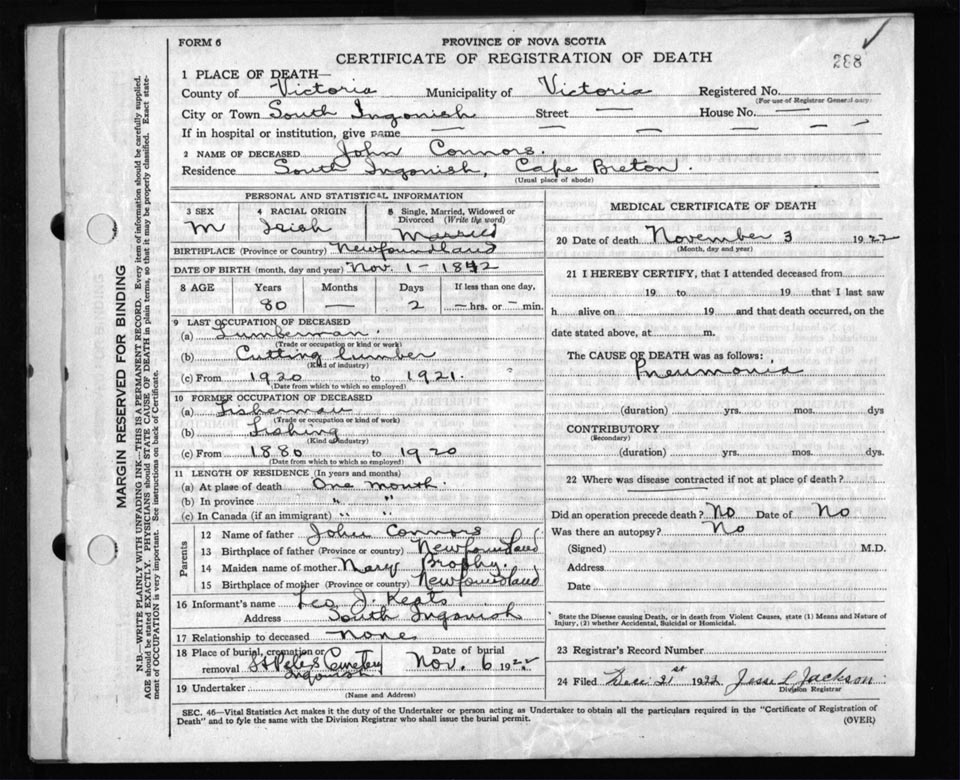 FORM 6
PROVINCE OF NOVA SCOTIA
CERTIFICATE OF REGISTRATION OF DEATH
288
1 PLACE OF DEATH—
County of Victoria Municipality of Victoria Registered No.
(For use of Registrar General only)
City or Town South Ingonish Street — House No. —
If in hospital or institution, give name — — — — —
2 NAME OF DECEASED John Connors.
Residence South Ingonish, Cape Breton.
(Usual place of abode)
PERSONAL AND STATISTICAL INFORMATION
3 SEX 4 RACIAL ORIGIN 5 Single, Married, Widowed or Divorced (Write the word)
M Irish Married
BIRTHPLACE (Province or Country) Newfoundland
DATE OF BIRTH (month, day and year) Nov. 1 - 1842
8 AGE Years Months Days If less than one day,
80 — 2 — hrs. or — min.
9 LAST OCCUPATION OF DECEASED
(a) Lumberman.
(Trade or occupation or kind or work)
(b) Cutting lumber
(Kind of industry)
(c) From 1920 to 1921.
(Date from which to which so employed)
10 FORMER OCCUPATION OF DECEASED
(a) Fisherman
(Trade or occupation or kind of work)
(b) Fishing
(Kind of industry)
(c) From 1880 to 1920
(Date from which to which so employed)
11 LENGTH OF RESIDENCE (In years and months)
(a) At place of death One month.
(b) In province " "
(c) In Canada (if an immigrant) " "
Parents
12 Name of father John Connors
13 Birthplace of father (Province or country) Newfoundland
14 Maiden name of mother Mary Brophy.
15 Birthplace of mother (Province or country) Newfoundland
16 Informant's name Leo J. Keats
Address South Ingonish
17 Relationship to deceased None
18 Place of burial, cremation or removal St Peters Cemetery Ingonish
Date of burial Nov. 6 1922
19 Undertaker
(Name and Address)
MEDICAL CERTIFICATE OF DEATH
20 Date of death November 3 1922
(Month, day and year)
21 I HEREBY CERTIFY, that I attended deceased from
19 to 19 that I last saw
h alive on 19 and that death occurred, on the
date stated above, at m.
The CAUSE OF DEATH was as follows:
Pneumonia
(duration) yrs. mos. dys
CONTRIBUTORY
(Secondary)
(duration) yrs. mos. dys.
22 Where was disease contracted if not at place of death?
Did an operation precede death? No Date of No
Was there an autopsy? No
(Signed) M.D.
Address
Date
State the Disease causing Death, or in death from Violent Causes, state (1) Means and Nature of
Injury, (2) whether Accidental, Suicidal or Homicidal.
23 Registrar's Record Number
24 Filed Dec 21st 1922 Jesse L Jackson
Division Registrar
SEC. 46—Vital Statistics Act makes it the duty of the Undertaker or person acting as Undertaker to obtain all the particulars required in the "Certificate of Registration of
Death" and to fyle the same with the Division Registrar who shall issue the burial permit.
(OVER)
MARGIN RESERVED FOR BINDING
N.B.—WRITE PLAINLY WITH UNFADING INK—THIS IS A PERMANENT RECORD. Every item of information should be carefully supplied.
AGE should be stated EXACTLY. PHYSICIANS should STATE CAUSE OF DEATH in plain terms, so that it may be properly classified. Exact state-
ment of OCCUPATION is very important. See instructions on back of Certificate.